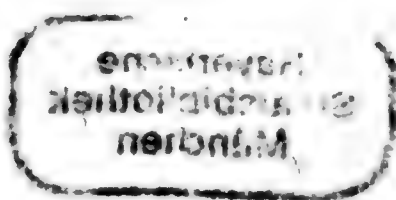 Bayerische
Staatsbibliothek
München